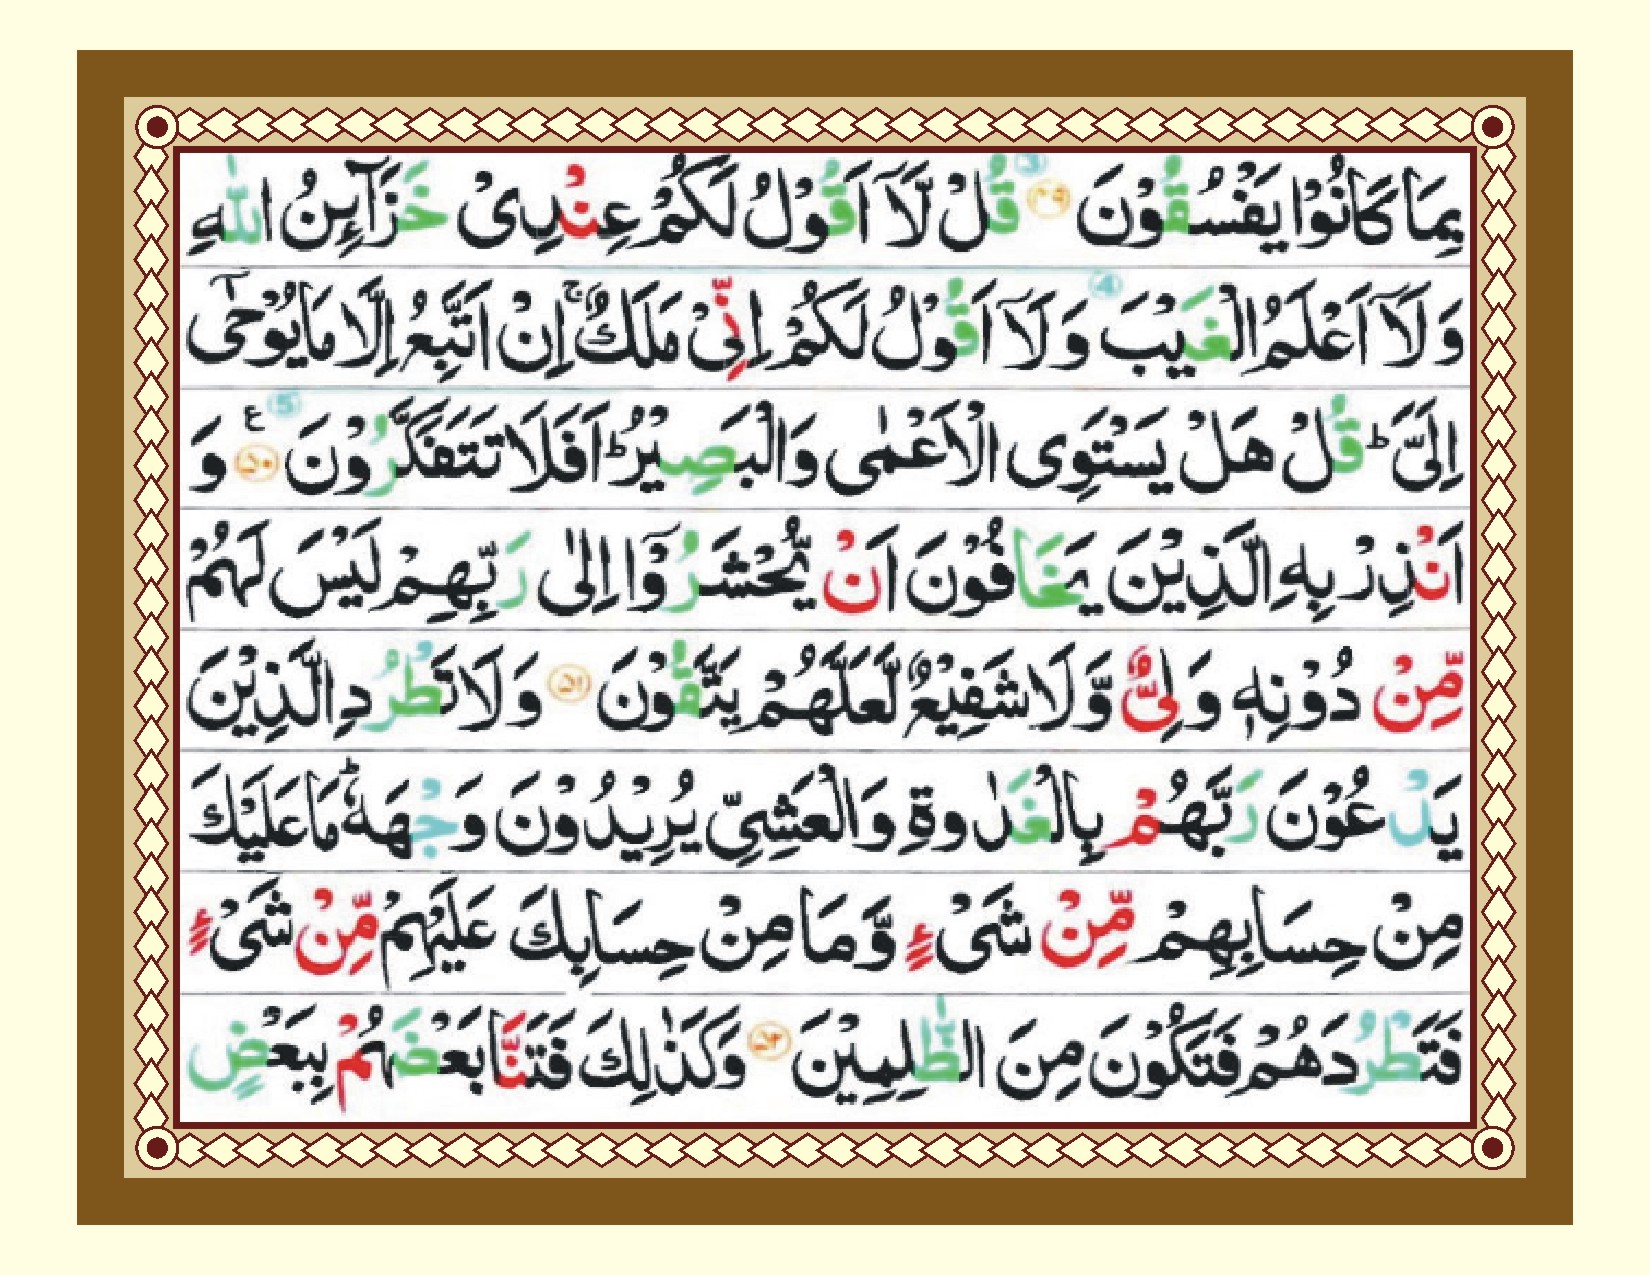 بِمَا كَانُوۡا يَفۡسُقُوۡنَ ﴿۴۹﴾ قُلۡ لَّاۤ اَقُوۡلُ لَكُمۡ عِنۡدِىۡ خَزَآٮِٕنُ اللّٰهِ
وَلَاۤ اَعۡلَمُ الۡغَيۡبَ وَلَاۤ اَقُوۡلُ لَكُمۡ اِنِّىۡ مَلَكٌ‌ ۚ اِنۡ اَتَّبِعُ اِلَّا مَا يُوۡحٰٓى
اِلَىَّ‌ ؕ قُلۡ هَلۡ يَسۡتَوِى الۡاَعۡمٰى وَالۡبَصِيۡرُ‌ ؕ اَفَلَا تَتَفَكَّرُوۡنَ ﴿۵۰﴾ ع وَ
اَنۡذِرۡ بِهِ الَّذِيۡنَ يَخَافُوۡنَ اَنۡ يُّحۡشَرُوۡۤا اِلٰى رَبِّهِمۡ‌ لَيۡسَ لَهُمۡ
مِّنۡ دُوۡنِهٖ وَلِىٌّ وَّلَا شَفِيۡعٌ لَّعَلَّهُمۡ يَتَّقُوۡنَ ﴿۵۱﴾ وَلَا تَطۡرُدِ الَّذِيۡنَ
يَدۡعُوۡنَ رَبَّهُمۡ بِالۡغَدٰوةِ وَالۡعَشِىِّ يُرِيۡدُوۡنَ وَجۡهَهٗ‌ ؕ مَا عَلَيۡكَ
مِنۡ حِسَابِهِمۡ مِّنۡ شَىۡءٍ وَّمَا مِنۡ حِسَابِكَ عَلَيۡهِمۡ مِّنۡ شَىۡءٍ
فَتَطۡرُدَهُمۡ فَتَكُوۡنَ مِنَ الظّٰلِمِيۡنَ ﴿۵۲﴾ وَكَذٰلِكَ فَتَنَّا بَعۡضَهُمۡ بِبَعۡضٍ